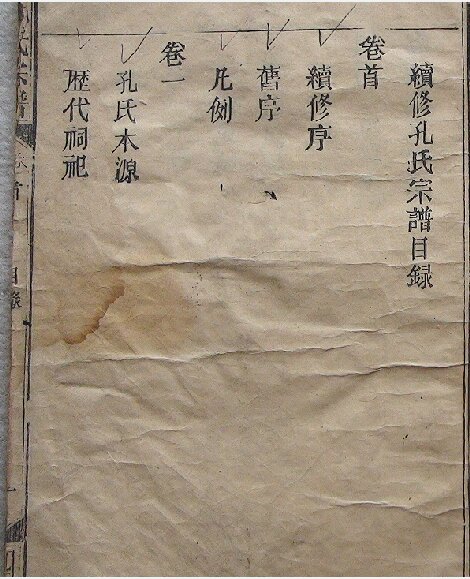 續修孔氏宗譜目録
卷首
續修序
舊序
凡例
卷一
孔氏木源
歴代祠祀
氏宗譜
首
目錄